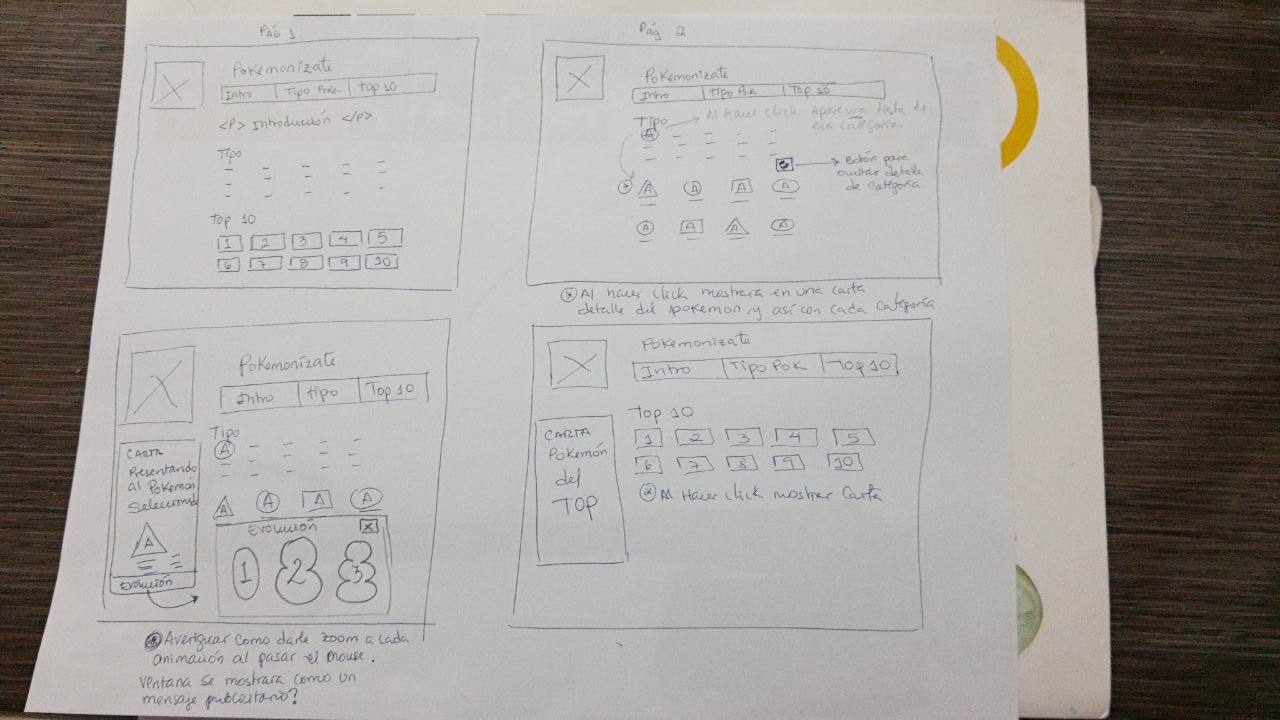 Pág 1
Pokemonízate
Intro Tipo Poke. Top 10
<P> Introducción </P>
Tipo
Top 10
1 2 3 4 5
6 7 8 9 10
Pág 2
Pokemonízate
Intro Tipo Pok Top 10
Tipo
A
Al hacer click. Aparece una lista de
esa categoría
Botón para
ocultar detalle
de categoría
A A A A
A A A A
Al hacer click mostrará en una carta
detalle del pokemon y así con cada categoría.
Pokemonízate
Intro tipo Top 10
Tipo
A
A A A A
CARTA
Presentando
al Pokemón
Seleccionado
A
Evolución
Evolución X
1 2 3
Averiguar como darle zoom a cada
animación al pasar el mouse.
Ventana se mostrara como un
mensaje publicitario?
Pokemonízate
Intro Tipo Pok Top 10
Top 10
1 2 3 4 5
6 7 8 9 10
Al Hacer click mostrar Carta
CARTA
Pokemón
del
TOP